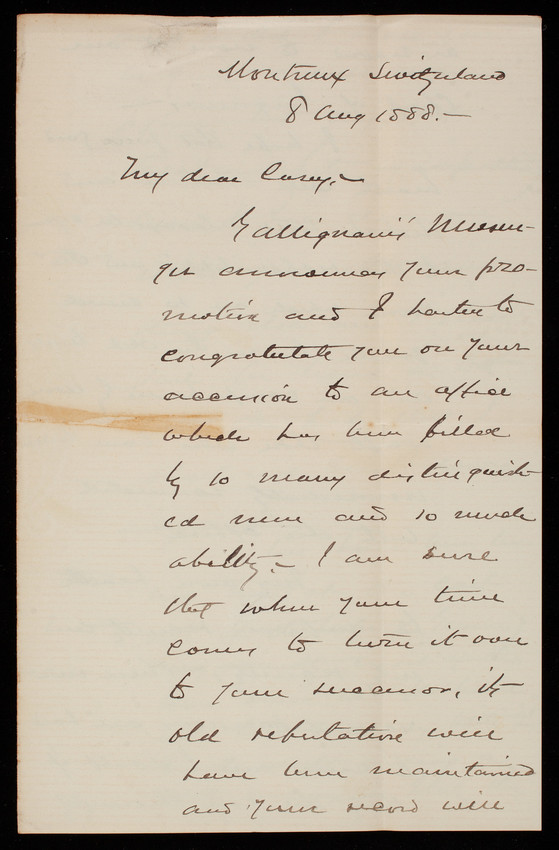 Montreux Switzerland
8 Aug 1888.—
My dear Casey,—
Gallignani's Messen-
ger announces your pro-
motion and I hasten to
congratulate you on your
accession to an office
which has been filled
by so many distinguish-
ed men and so much
ability,— I am sure
that when your time
comes to turn it over
to your successor, its
old reputation will
have been maintained
and your record will